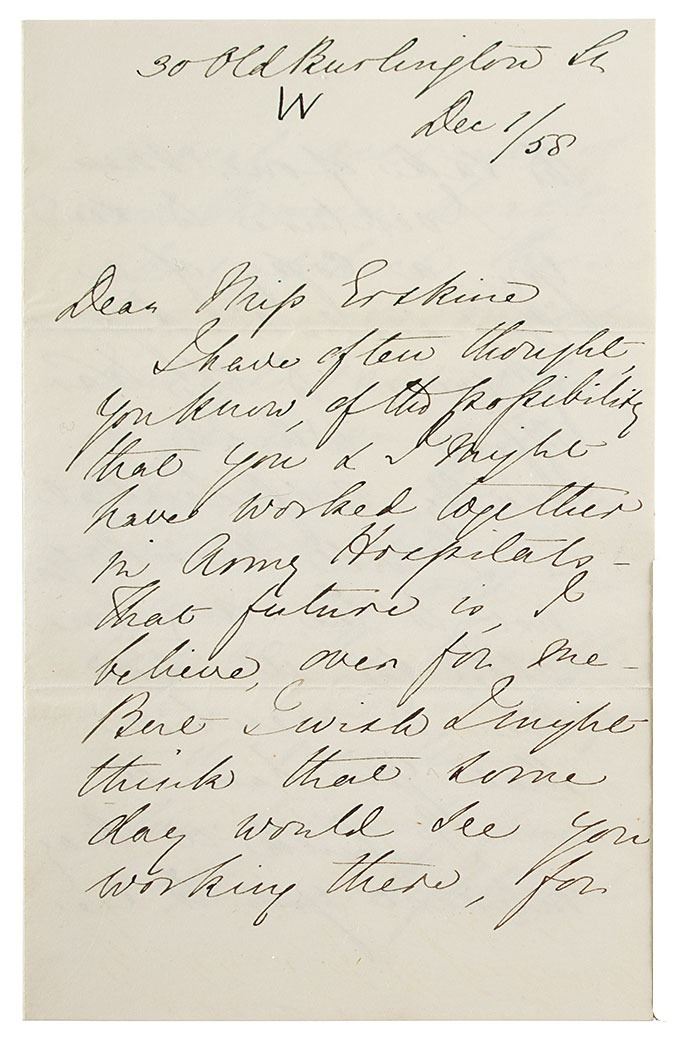 30 Old Burlington St
W
Dec 1/58
Dear Miss Erskine
I have often thought,
you know, of the possibility
that you & I might
have worked together
in Army Hospitals -
That future is, I
believe, over for me -
But I wish I might
think that some
day would see you
working there, for